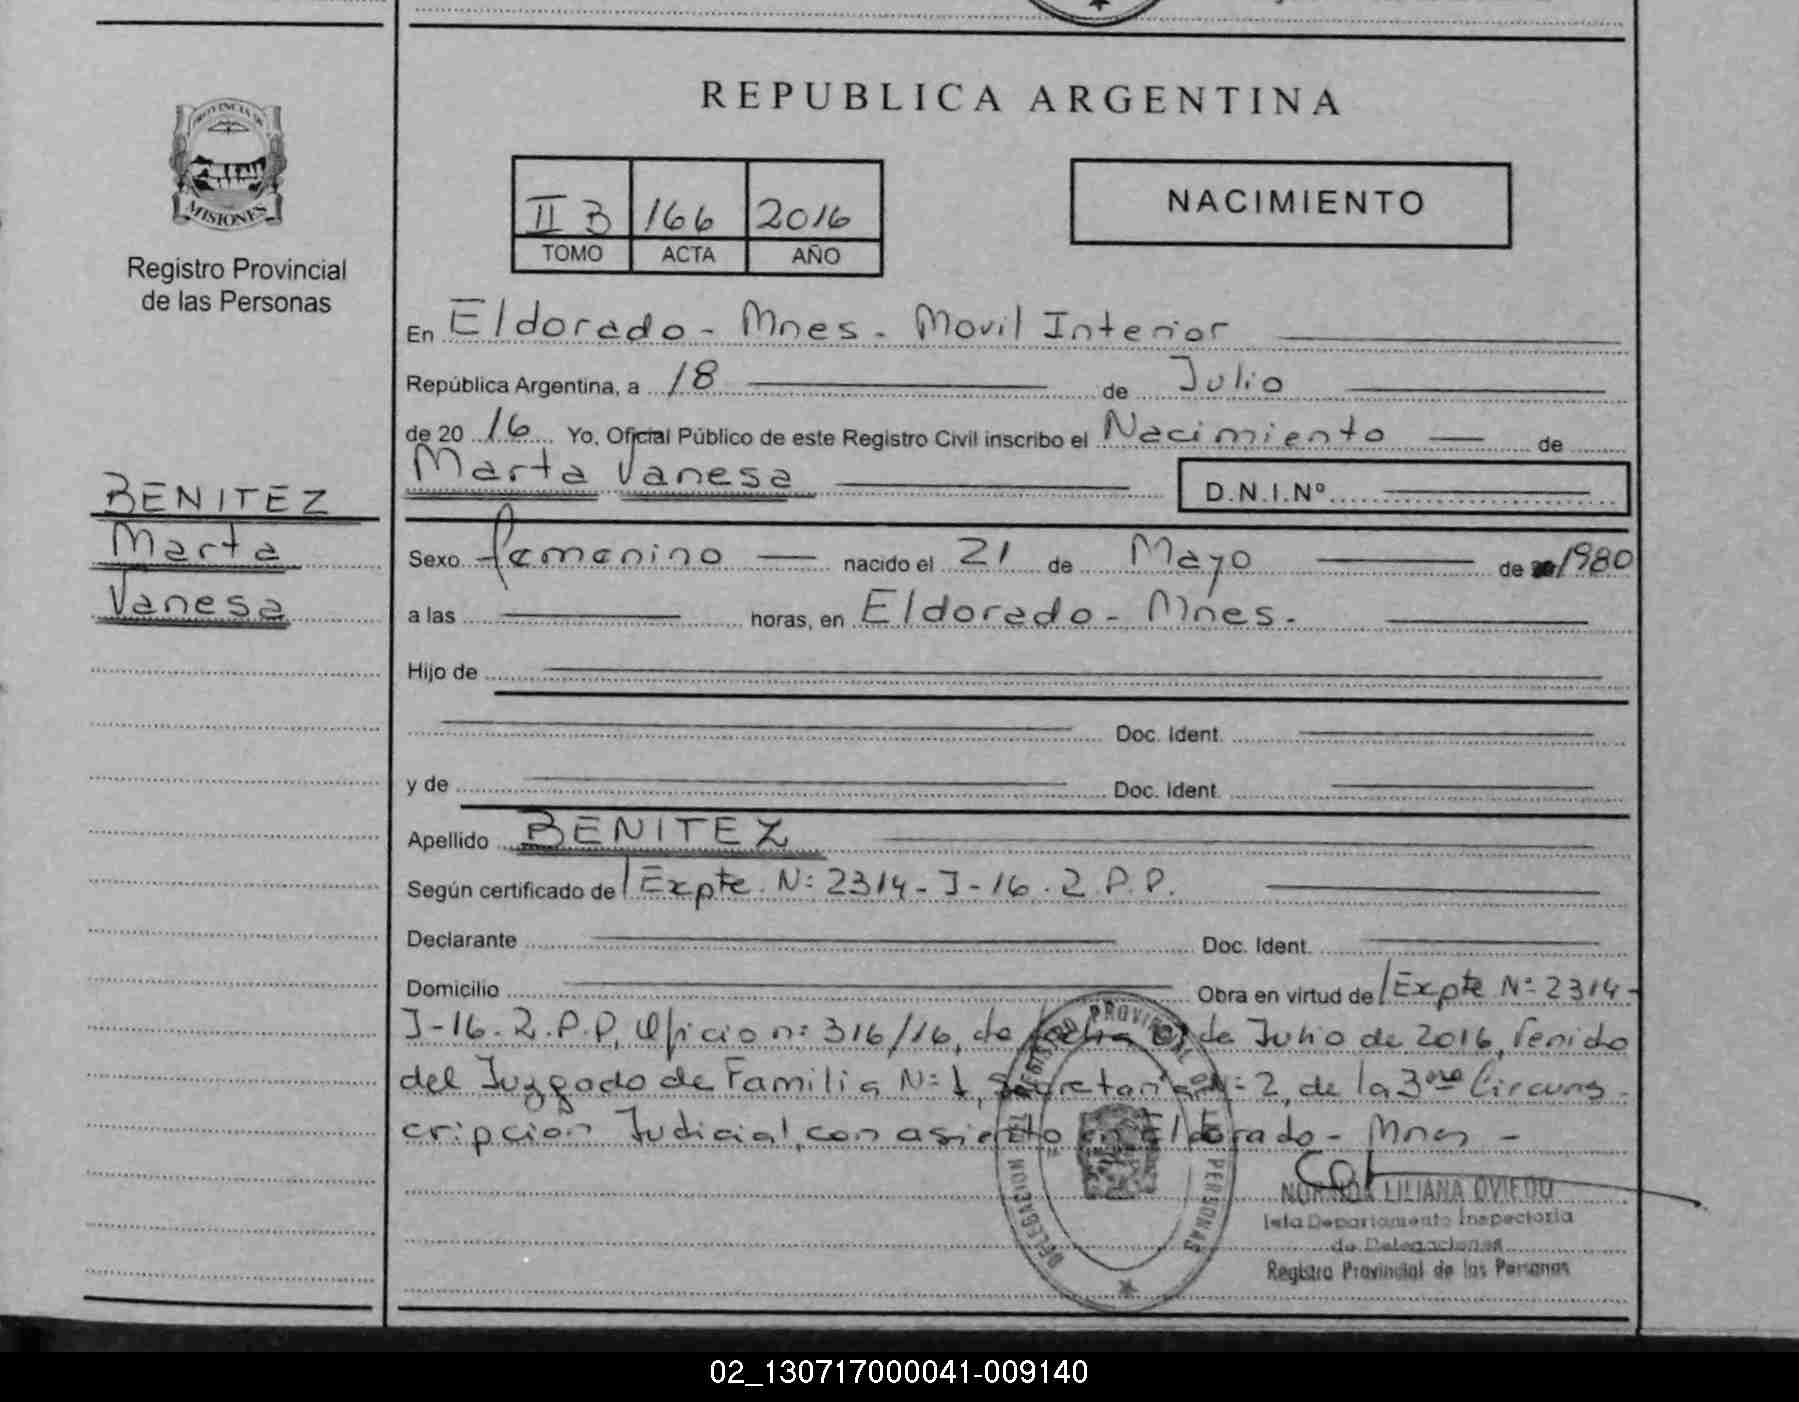 REPUBLICA ARGENTINA
PROVINCIA DE
MISIONES
Registro Provincial
de las Personas
II B 166 2016
TOMO ACTA AÑO
NACIMIENTO
En Eldorado - Mnes - Movil Interior
República Argentina, a 18 de Julio
de 2016 Yo, Oficial Público de este Registro Civil inscribo el Nacimiento de
Marta Vanesa D.N.I.Nº
BENITEZ
Marta
Vanesa
Sexo femenino nacido el 21 de Mayo de 1980
a las horas, en Eldorado - Mnes.
Hijo de
Doc. Ident.
y de Doc. Ident.
Apellido BENITEZ
Según certificado de Expte. Nº 2314-J-16. 2. P.P.
Declarante Doc. Ident.
Domicilio Obra en virtud de Expte Nº 2314-
J-16. 2. P.P, Oficio nº 316/16, de fecha de Julio de 2016, Venido
del Juzgado de Familia Nº 1, Secretaria Nº 2, de la 3era Circuns-
cripcion Judicial, con asiento en Eldorado - Mnes -
REGISTRO PROVINCIAL DE LAS PERSONAS
DELEGACION
LILIANA OVIEDO
Departamento Inspectoria
de Delegaciones
Registro Provincial de las Personas
02_130717000041-009140